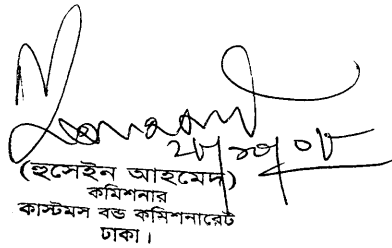 (হুসেইন আহমেদ)
কমিশনার
কাস্টমস বন্ড কমিশনারেট
ঢাকা।